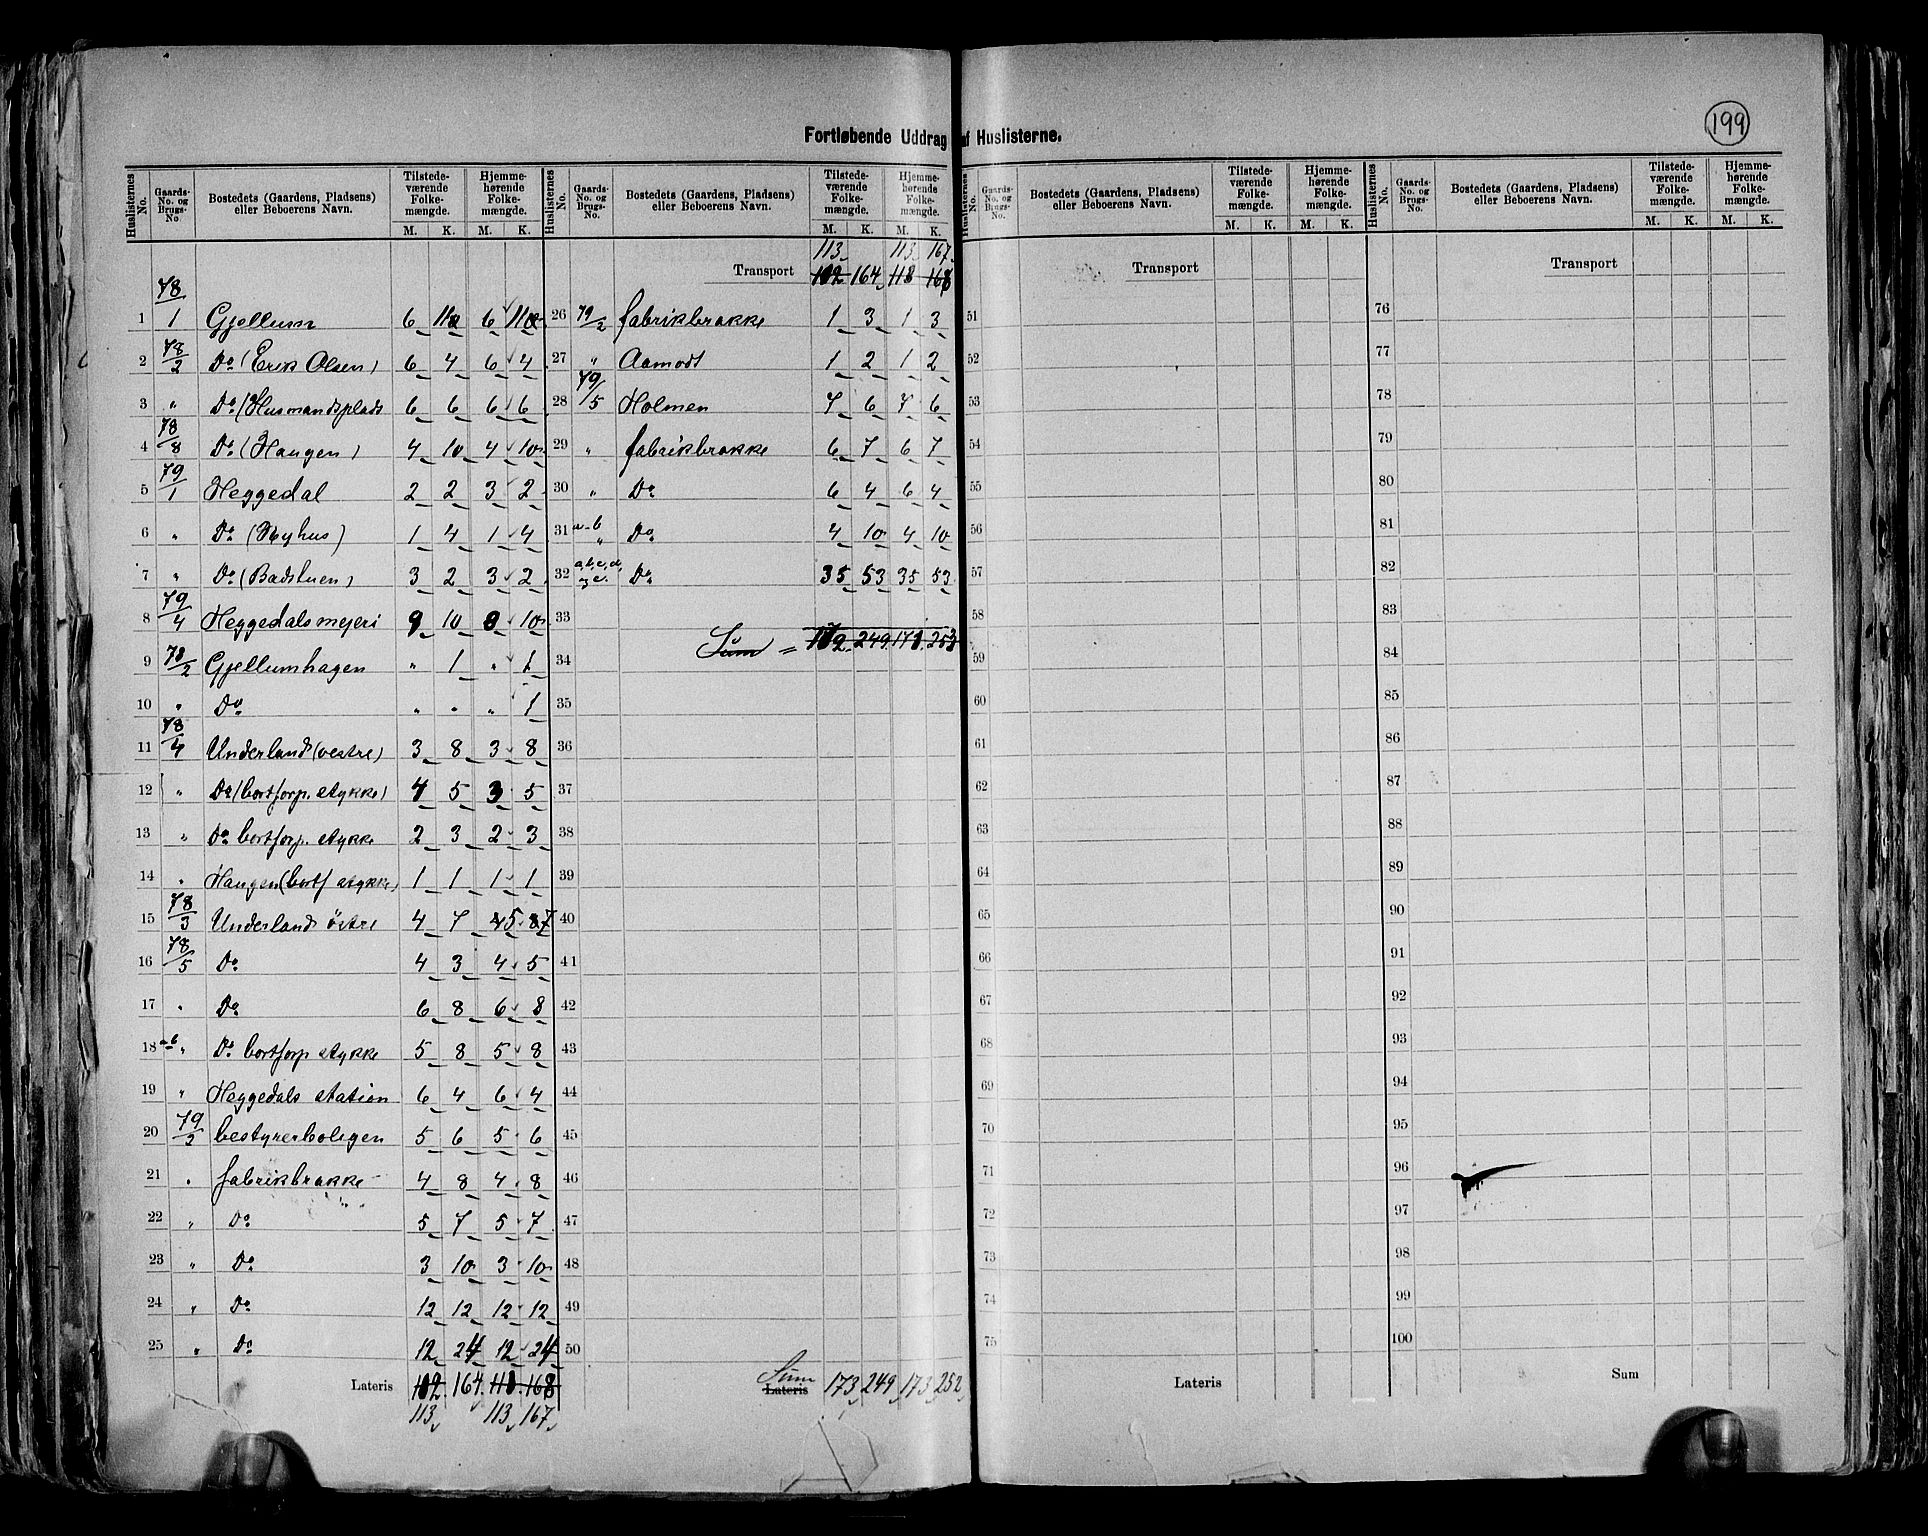 199
Fortløbende Uddrag af Huslisterne.
Huslisternes No. Gaards-No. og Brugs-No. Bostedets (Gaardens, Pladsens) eller Beboerens Navn. Tilstedeværende Folkemængde. M. K. Hjemmehørende Folkemængde. M. K.
1 78/1 Gjellum 6 11 6 11
2 78/2 Do (Erik Olsen) 6 4 6 4
3 " Do (Husmandsplads 6 6 6 6
4 78/8 Do (Haugen) 4 10 4 10
5 79/1 Heggedal 2 2 3 2
6 " Do (Nyhus) 1 4 1 4
7 " Do (Badstuen) 3 2 3 2
8 79/4 Heggedals mejeri 9 10 8 10
9 78/2 Gjellumhagen " 1 " 1
10 " Do " " " 1
11 78/4 Underland (vestre) 3 8 3 8
12 " Do (bortforp. stykke) 4 5 3 5
13 " Do bortforp. stykke 2 3 2 3
14 " Haugen (bortf stykke) 1 1 1 1
15 78/3 Underland östre 4 7 5 7
16 78/5 Do 4 3 4 5
17 " Do 6 8 6 8
18 a-b " Do bortforp stykke 5 8 5 8
19 " Heggedals station 6 4 6 4
20 79/2 bestyrerboligen 5 6 5 6
21 " fabrikbrakke 4 8 4 8
22 " Do 5 7 5 7
23 " Do 3 10 3 10
24 " Do 12 12 12 12
25 " Do 12 24 12 24
Lateris 112 164 118 168
113 113 167
Huslisternes No. Gaards-No. og Brugs-No. Bostedets (Gaardens, Pladsens) eller Beboerens Navn. Tilstedeværende Folkemængde. M. K. Hjemmehørende Folkemængde. M. K.
113 113 167
Transport 112 164 118 168
26 79/2 fabrikbrakke 1 3 1 3
27 " Aamodt 1 2 1 2
28 79/5 Holmen 7 6 7 6
29 " fabrikbrakke 6 7 6 7
30 " Do 6 4 6 4
31 a-b " Do 4 10 4 10
32 a,b,c,d, og e. Do 35 53 35 53
33
Sum = 172 249 178 253
34
35
36
37
38
39
40
41
42
43
44
45
46
47
48
49
50
Sum
Lateris 173 249 173 252
Huslisternes No. Gaards-No. og Brugs-No. Bostedets (Gaardens, Pladsens) eller Beboerens Navn. Tilstedeværende Folkemængde. M. K. Hjemmehørende Folkemængde. M. K.
Transport
51
52
53
54
55
56
57
58
59
60
61
62
63
64
65
66
67
68
69
70
71
72
73
74
75
Lateris
Huslisternes No. Gaards-No. og Brugs-No. Bostedets (Gaardens, Pladsens) eller Beboerens Navn. Tilstedeværende Folkemængde. M. K. Hjemmehørende Folkemængde. M. K.
Transport
76
77
78
79
80
81
82
83
84
85
86
87
88
89
90
91
92
93
94
95
96
97
98
99
100
Sum